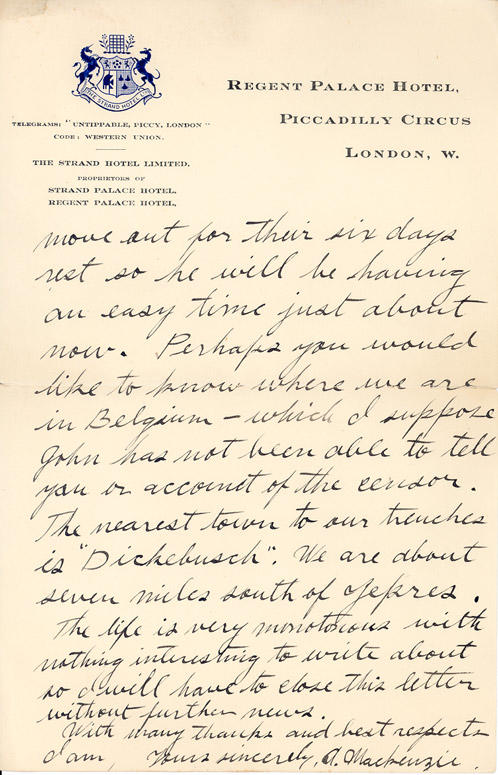 THE STRAND HOTEL LTD
TELEGRAMS: "UNTIPPABLE, PICCY, LONDON"
CODE: WESTERN UNION.
THE STRAND HOTEL LIMITED.
PROPRIETORS OF
STRAND PALACE HOTEL,
REGENT PALACE HOTEL,
REGENT PALACE HOTEL,
PICCADILLY CIRCUS
LONDON, W.
move out for their six days
rest so he will be having
an easy time just about
now. Perhaps you would
like to know where we are
in Belgium – which I suppose
John has not been able to tell
you on account of the censor.
The nearest town to our trenches
is "Dickebusch". We are about
seven miles south of Yepres.
The life is very monotonous with
nothing interesting to write about
so I will have to close this letter
without further news.
With many thanks and best respects
I am, Yours sincerely, A. Mackenzie.